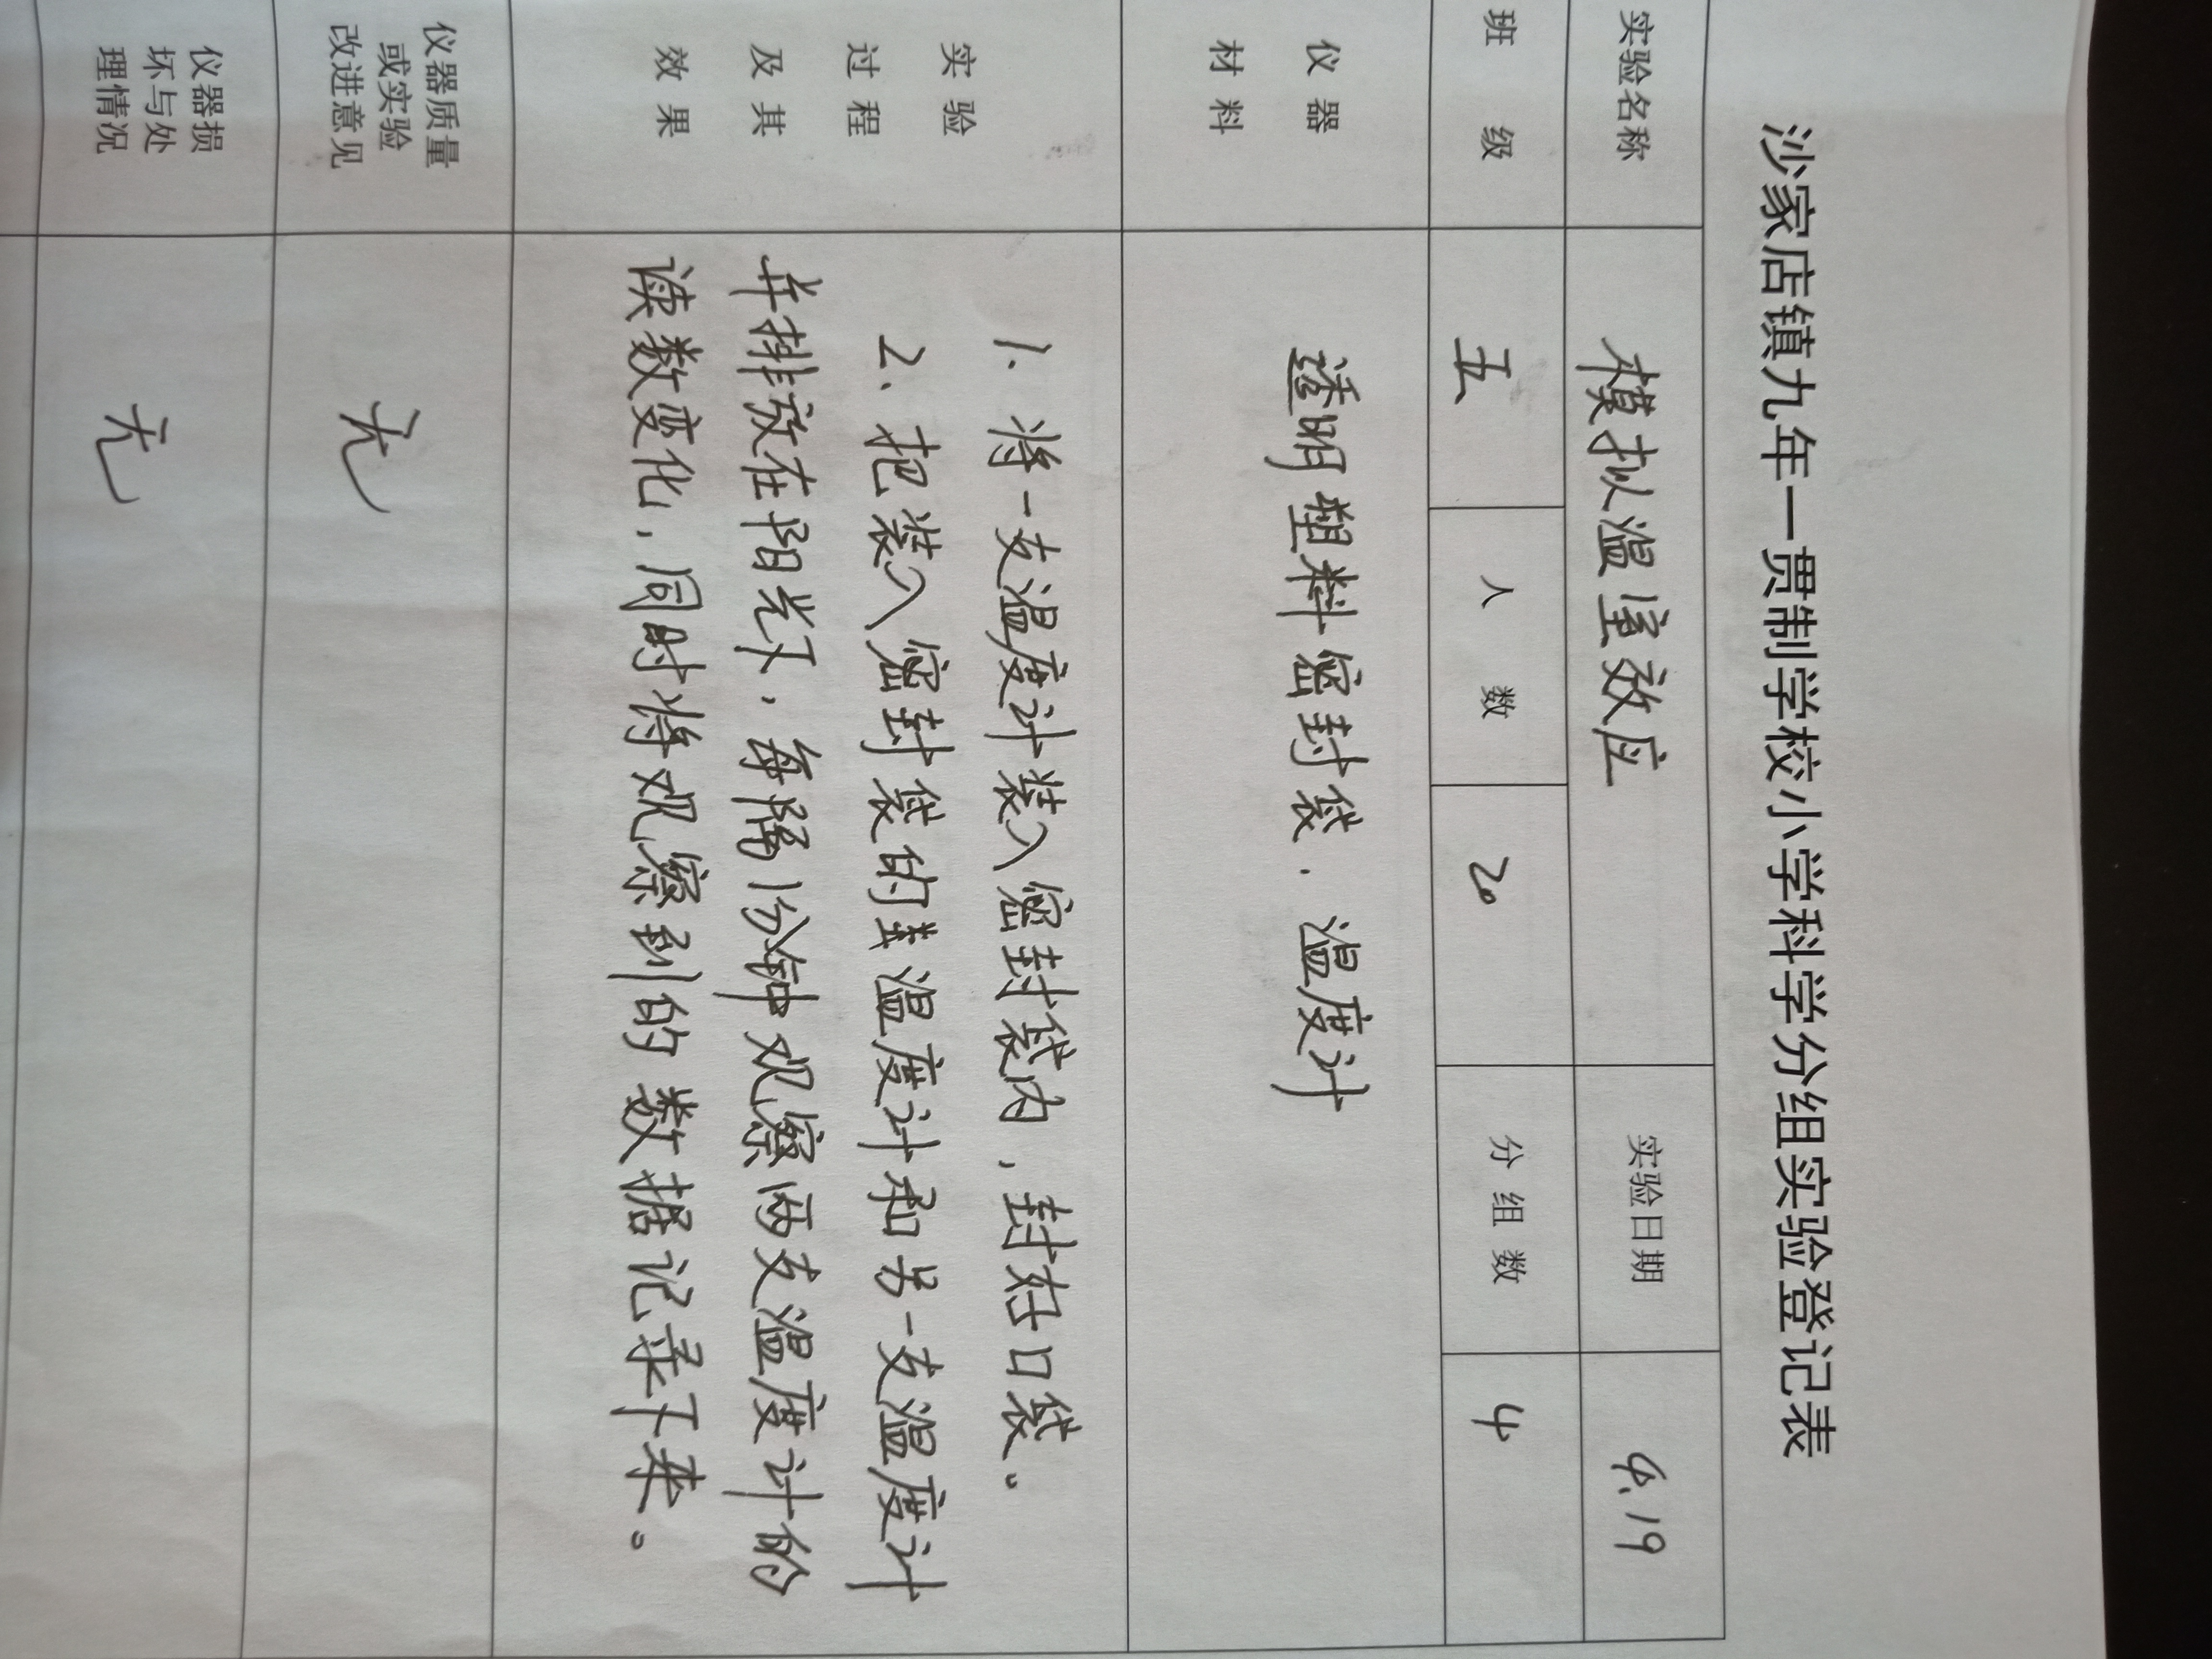 沙家店镇九年一贯制学校小学科学分组实验登记表
实验名称 模拟温室效应 实验日期 4.19
班 级 五 人 数 20 分 组 数 4
仪 器
材 料
透明塑料密封袋、温度计
实 验
过 程
及 其
效 果
1、将一支温度计装入密封袋内，封好口袋。
2、把装入密封袋的温度计和另一支温度计
并排放在阳光下，每隔1分钟观察两支温度计的
读数变化，同时将观察到的数据记录下来。
仪器质量
或实验
改进意见
无
仪器损
坏与处
理情况
无